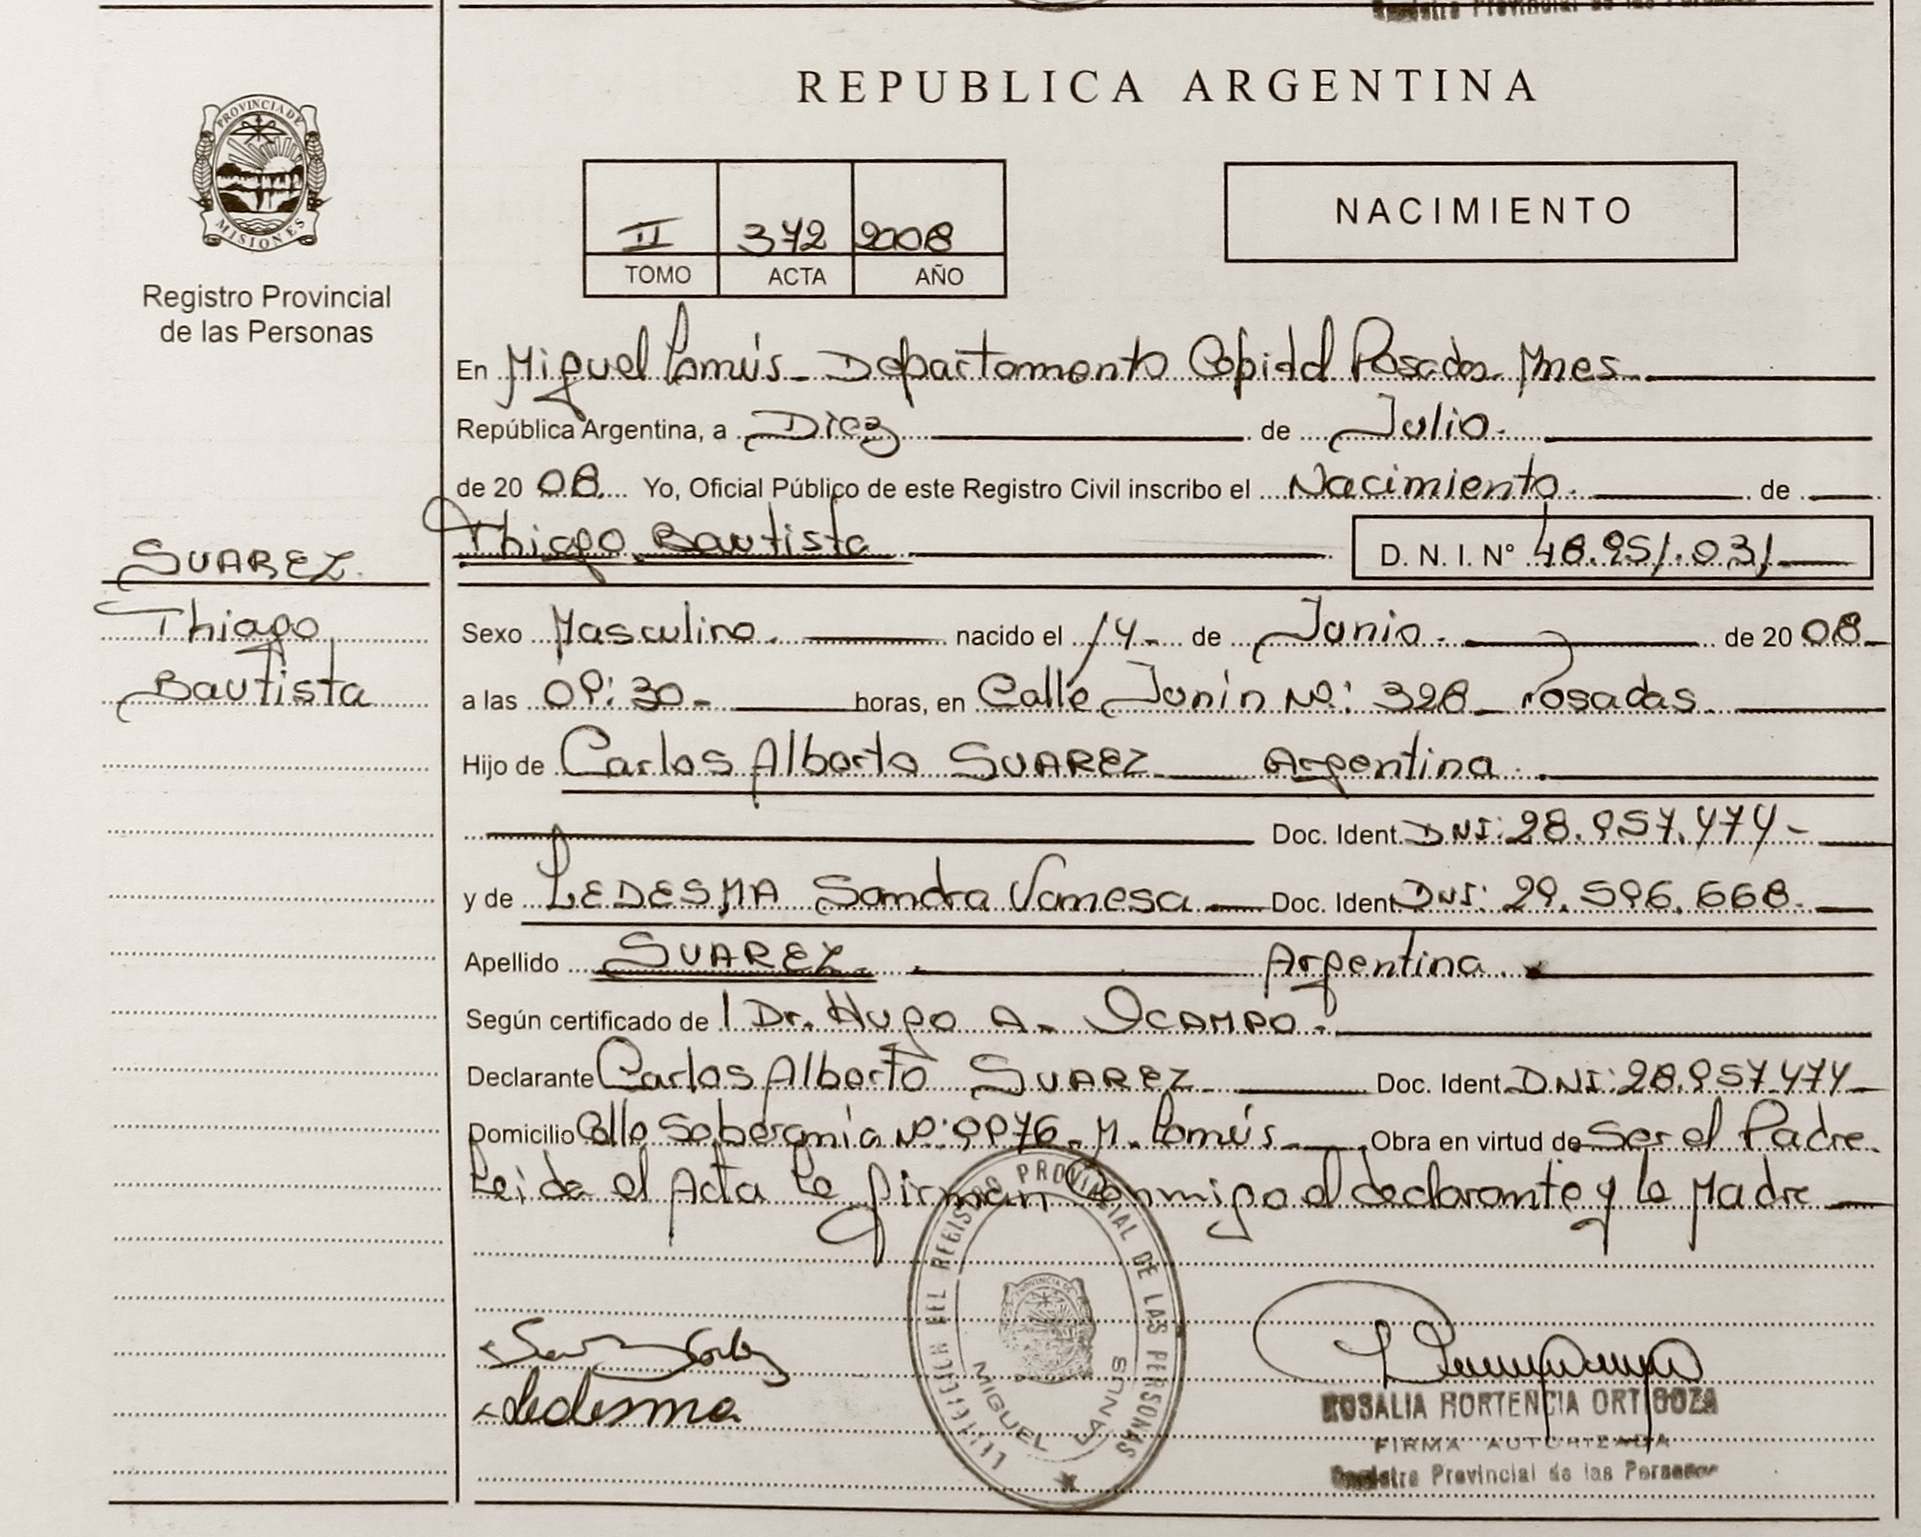 REPUBLICA ARGENTINA
PROVINCIA DE
MISIONES
Registro Provincial
de las Personas
II 372 2008
TOMO ACTA AÑO
NACIMIENTO
En Miguel Lanús - Departamento Capital Posadas Mnes.
República Argentina, a Diez de Julio.
de 20 08. Yo, Oficial Público de este Registro Civil inscribo el Nacimiento. de
Thiago Bautista D. N. I. N° 48.951.031
SUAREZ.
Thiago
Bautista
Sexo Masculino. nacido el 14- de Junio. de 20 08.
a las 09:30- horas, en Calle Junín Nº: 328 - Posadas.
Hijo de Carlos Alberto SUAREZ Argentina.
Doc. Ident. DNI: 28.957.474-
y de LEDESMA Sandra Vanesa Doc. Ident. DNI: 29.596.668.
Apellido SUAREZ. Argentina.
Según certificado de l Dr. Hugo A. OCAMPO.
Declarante Carlos Alberto SUAREZ Doc. Ident. DNI: 28.957.474
Domicilio Calle Soberanía Nº: 9976. M. Lanús. Obra en virtud de Ser el Padre.
Leida el Acta la firman Conmigo el declarante y la Madre
REGISTRO PROVINCIAL DE LAS PERSONAS
MIGUEL LANUS
Ledesma
ROSALIA HORTENCIA ORTIGOZA
FIRMA AUTORIZADA
Registro Provincial de las Personas